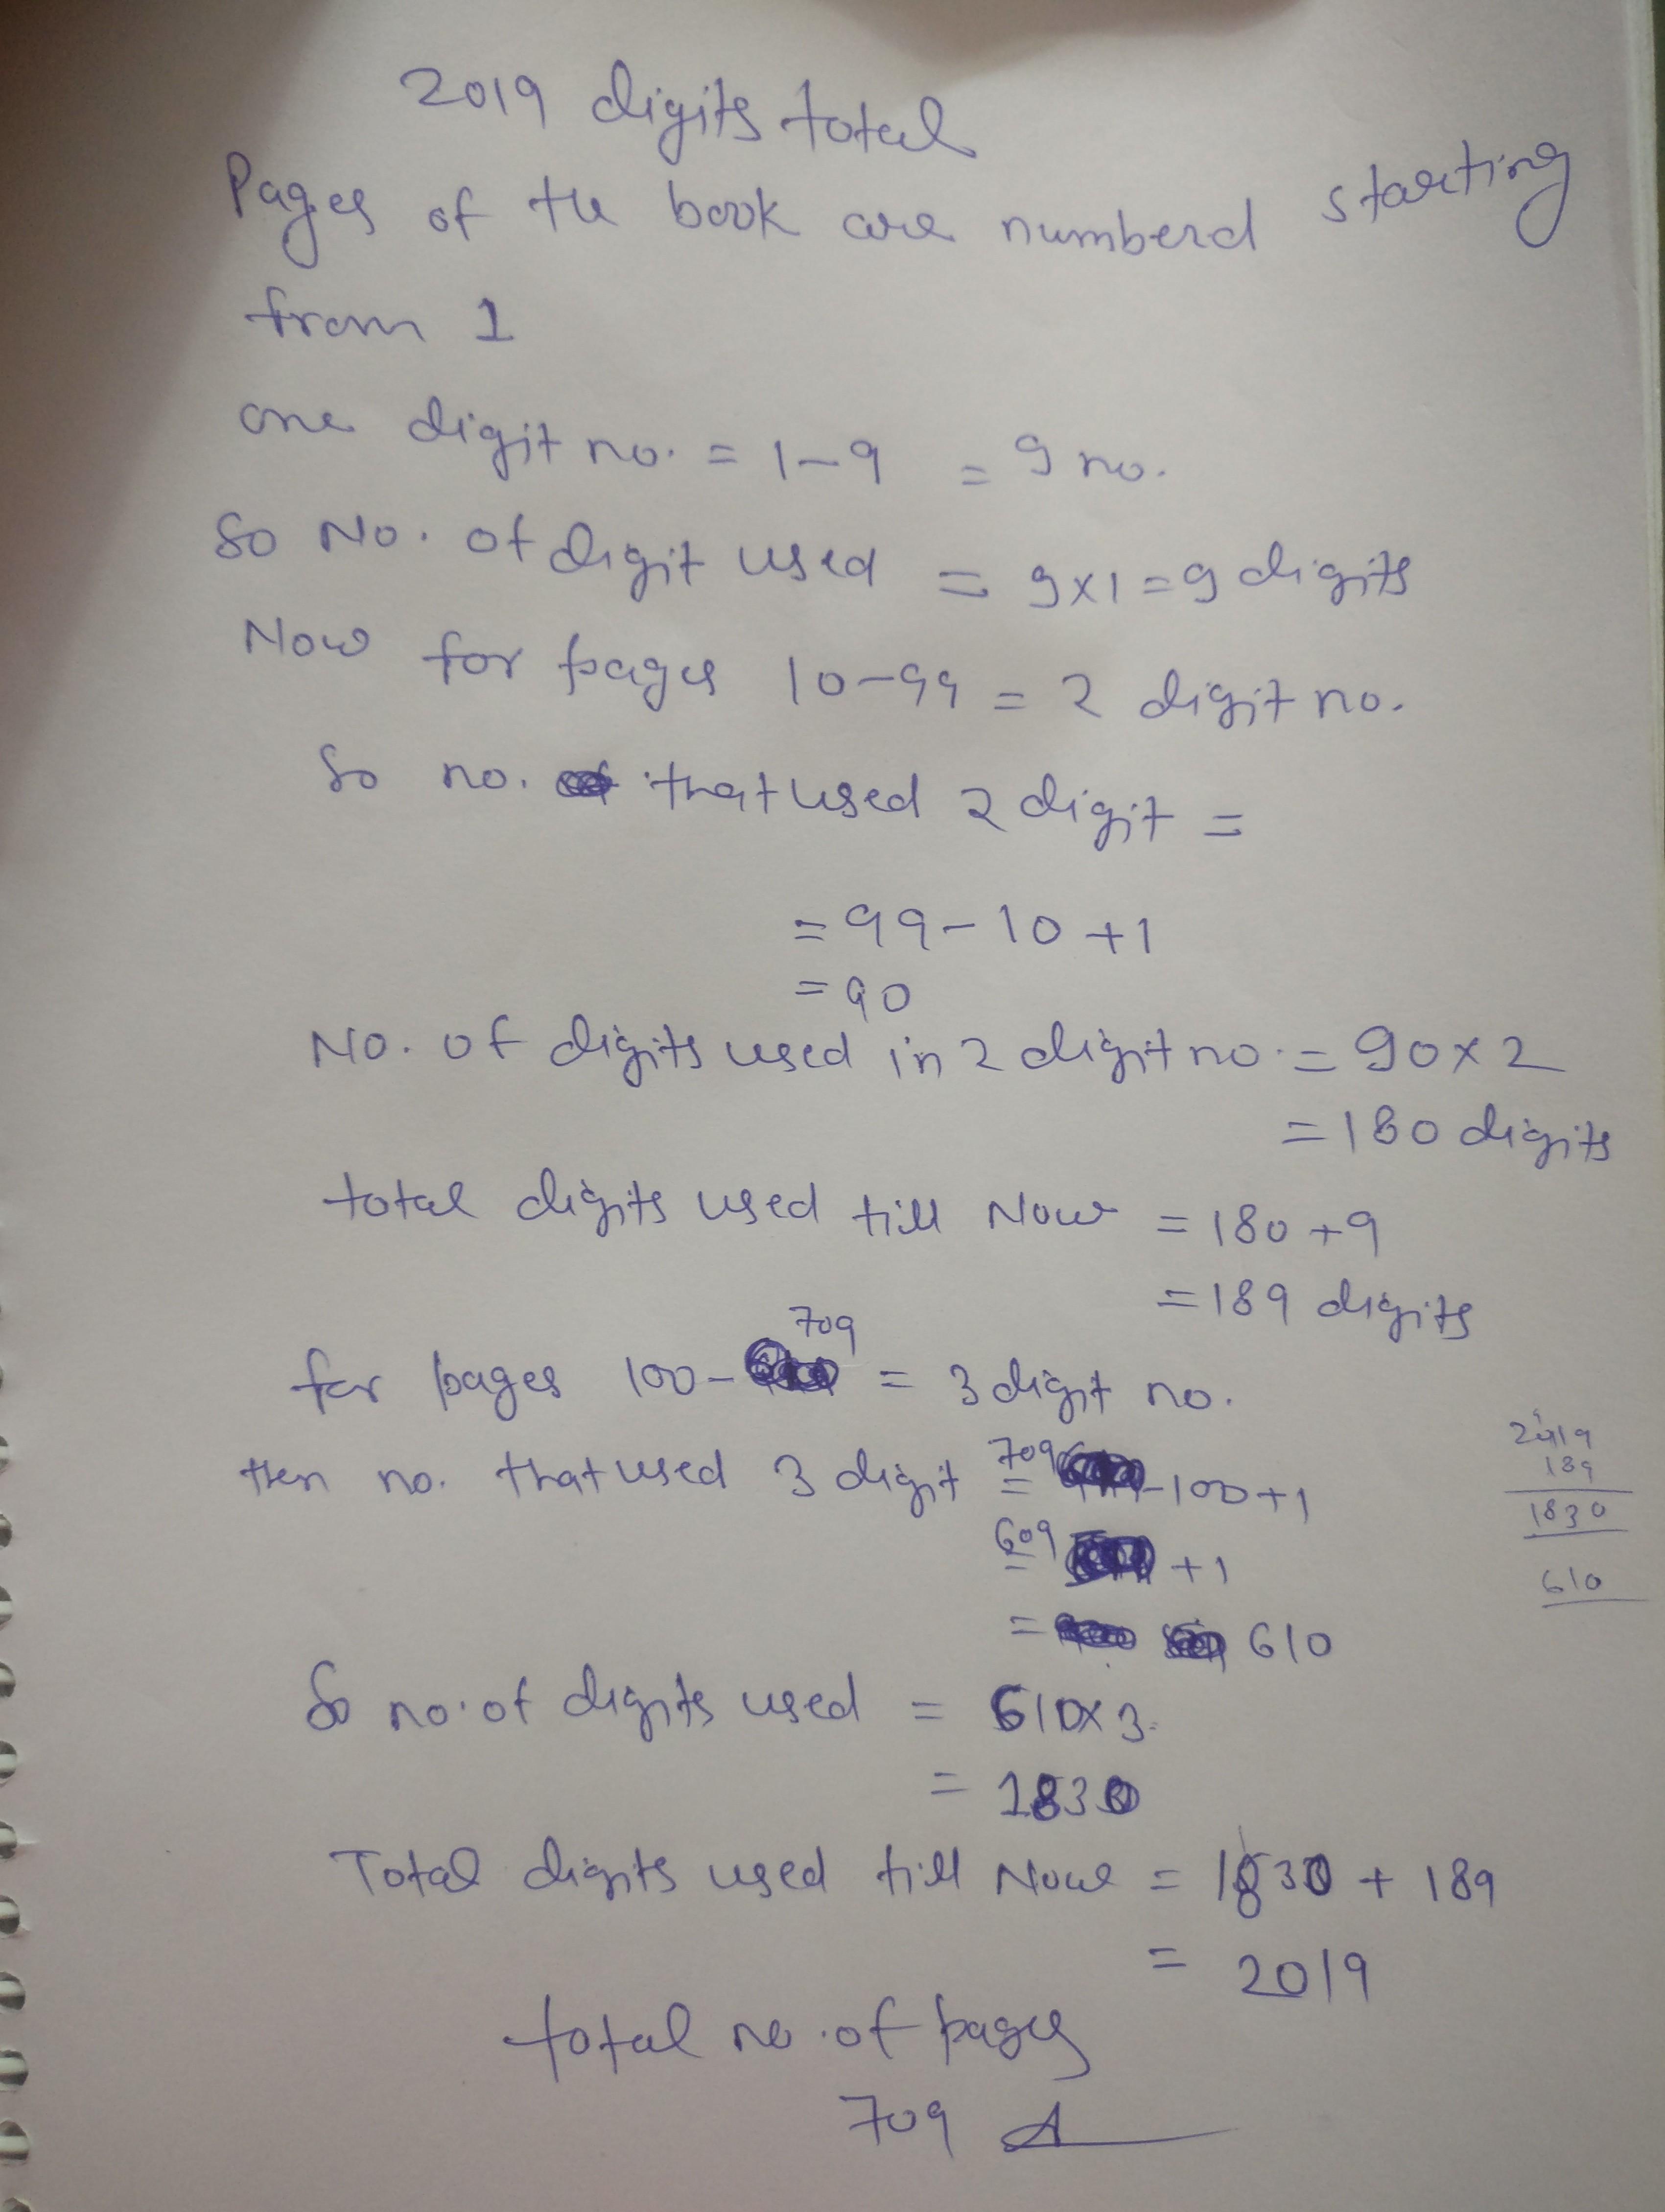 2019 digits total
Pages of the book are numberd starting
from 1
one digit no. = 1-9 = 9 no.
So No. of digit used = 9x1 = 9 digits
Now for pages 10-99 = 2 digit no.
So no. that used 2 digit =
= 99-10+1
= 90
No. of digits used in 2 digit no. = 90x2
= 180 digits
total digits used till Now = 180+9
= 189 digits
for pages 100-709 = 3 digit no.
then no. that used 3 digit = 709-100+1
= 609+1
= 610
2019
189
1830
610
So no. of digits used = 610x3
= 1830
Total digits used till Now = 1830 + 189
= 2019
total no. of pages
709